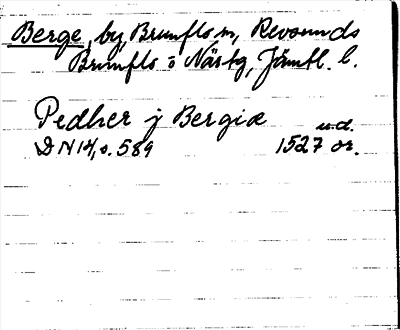 Berge, by Brunflo sn, Revsunds
Brunflo o Näs tg, Jämtl. l.
Pedher j Bergiæ
u.d.
DN 14, s. 589 1527 or.